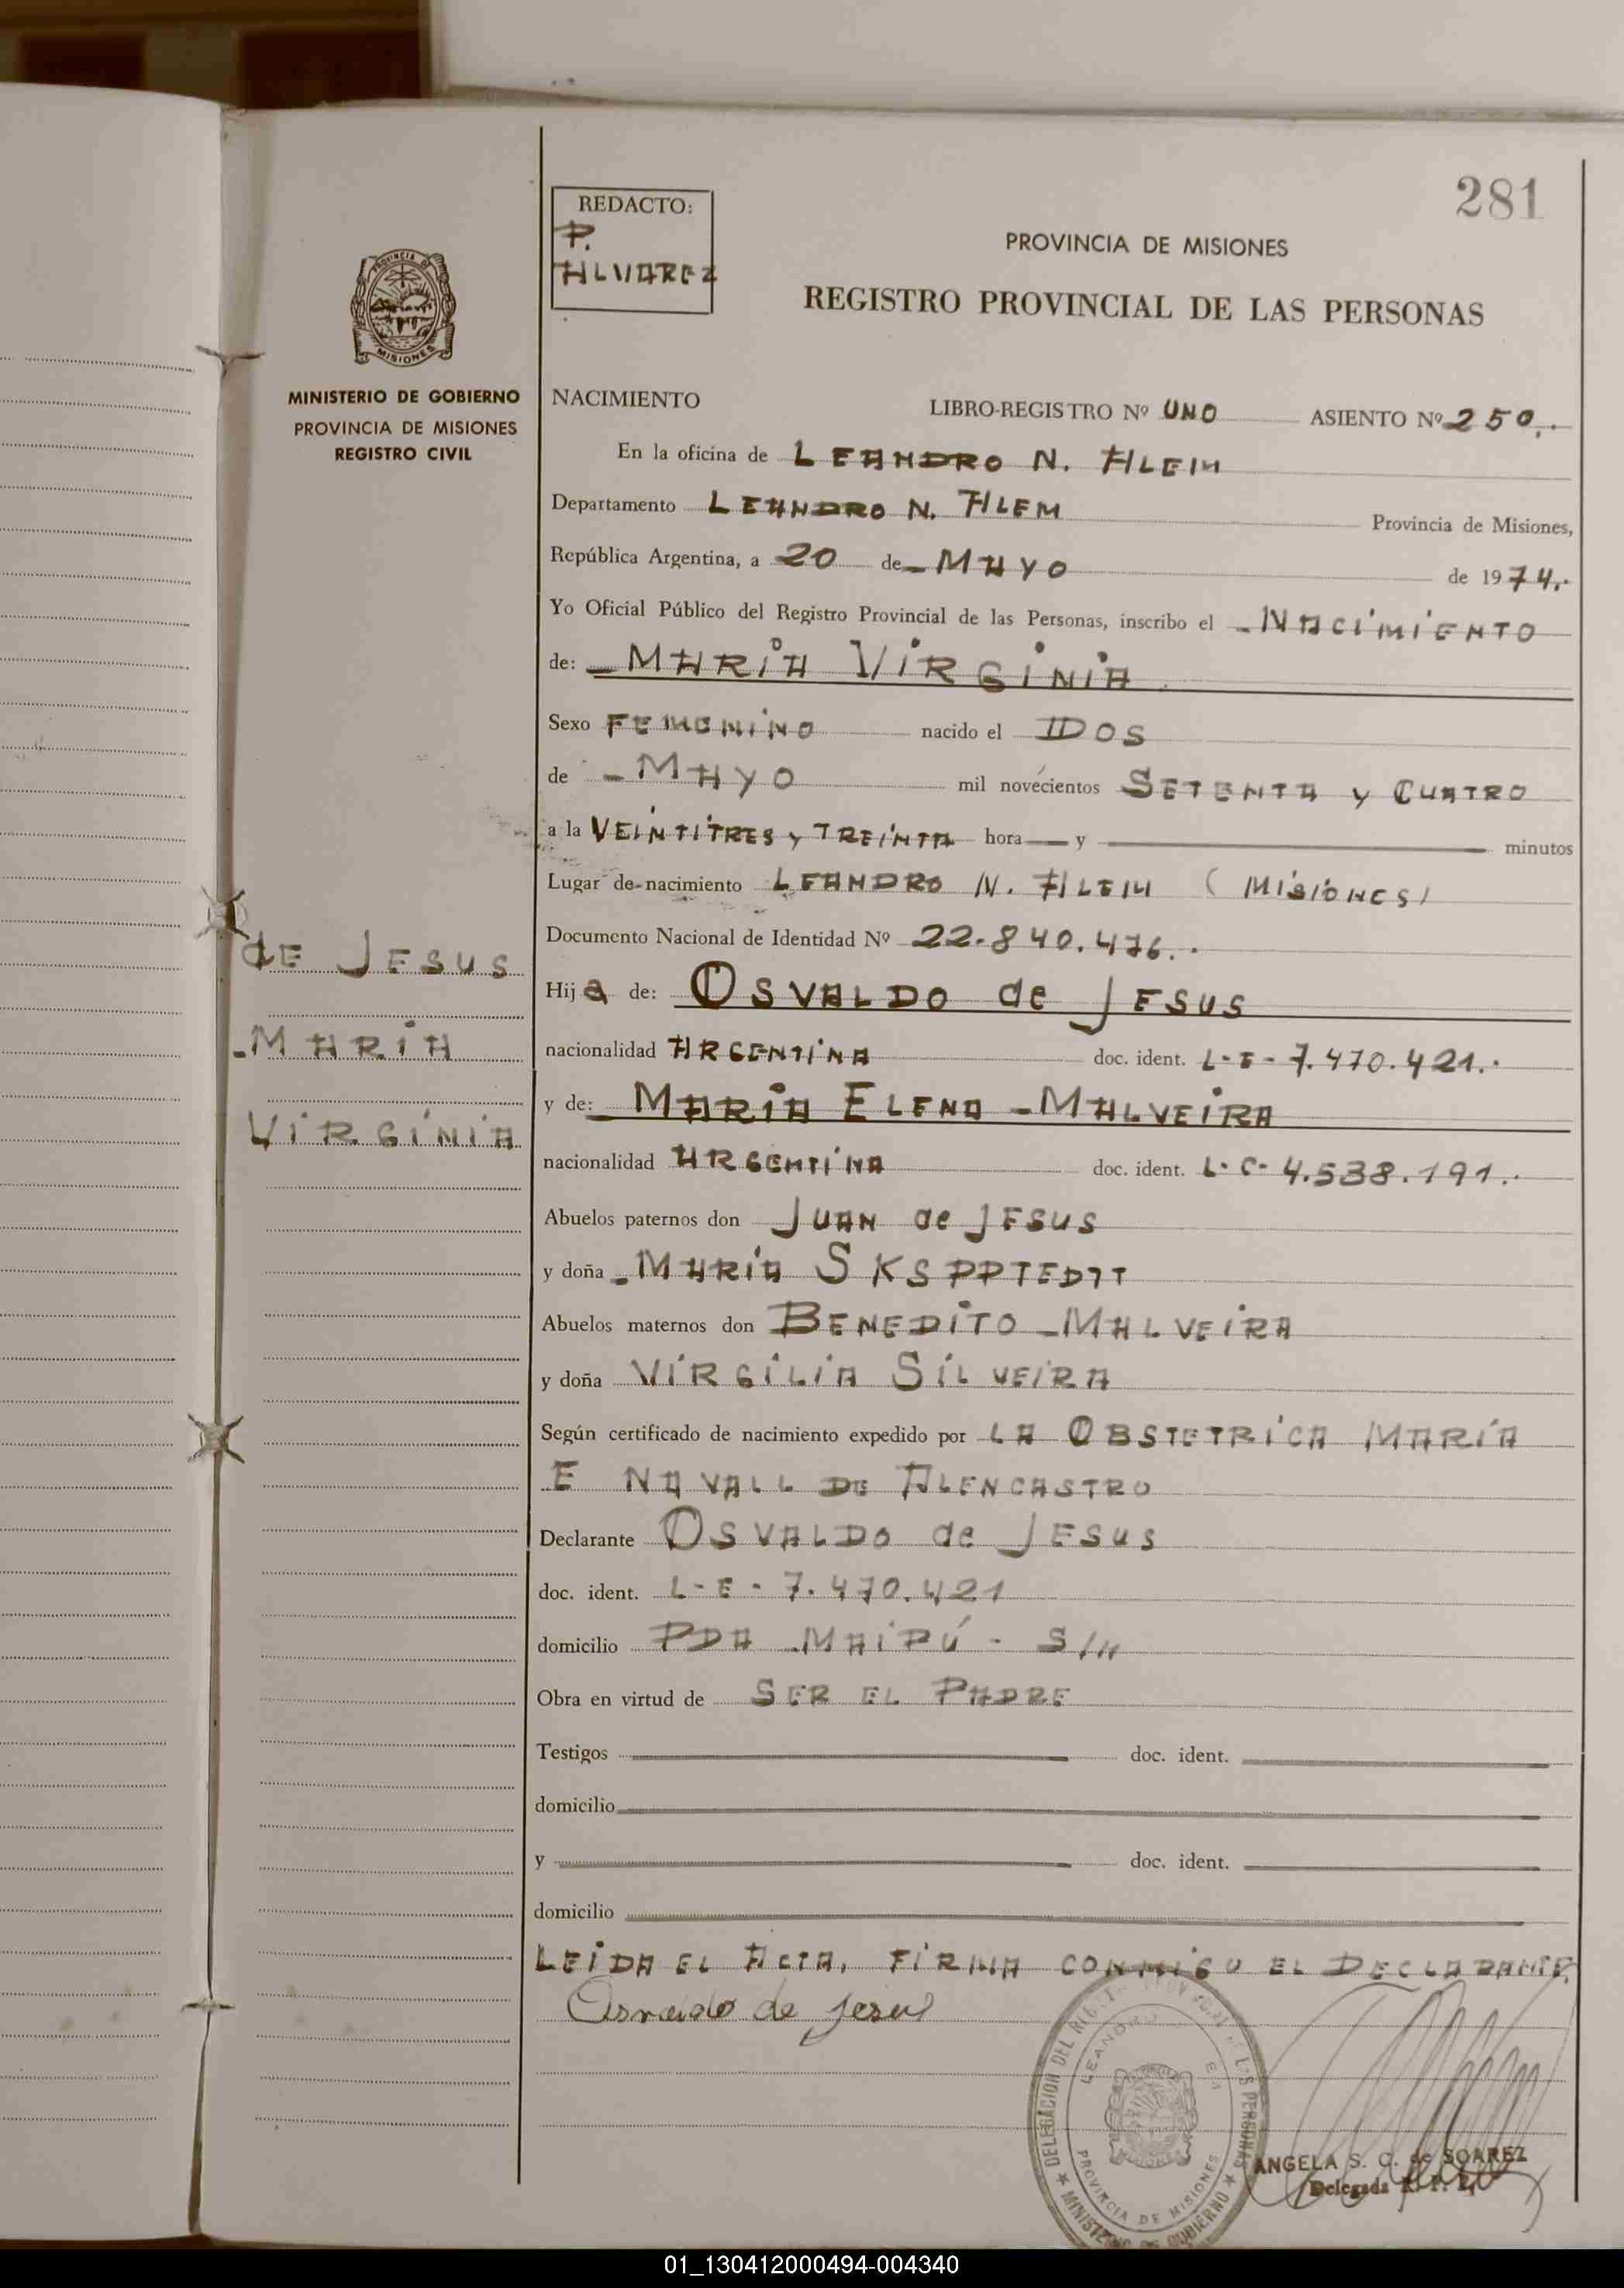 281
REDACTO:
P.
ALVAREZ
PROVINCIA DE MISIONES
REGISTRO PROVINCIAL DE LAS PERSONAS
PROVINCIA DE
MISIONES
MINISTERIO DE GOBIERNO
PROVINCIA DE MISIONES
REGISTRO CIVIL
NACIMIENTO LIBRO-REGISTRO Nº UNO ASIENTO Nº 250..
En la oficina de LEANDRO N. ALEM
Departamento LEANDRO N. ALEM Provincia de Misiones,
República Argentina, a 20 de MAYO de 1974..
Yo Oficial Público del Registro Provincial de las Personas, inscribo el NACIMIENTO
de: MARIA VIRGINIA
Sexo FEMENINO nacido el DOS
de MAYO mil novecientos SETENTA y CUATRO
a la VEINTITRES y TREINTA hora y minutos
Lugar de nacimiento LEANDRO N. ALEM (MISIONES)
Documento Nacional de Identidad Nº 22.840.476..
de JESUS
MARIA
VIRGINIA
Hija de: OSVALDO de JESUS
nacionalidad ARGENTINA doc. ident. L-E-7.470.421..
y de: MARIA ELENA MALVEIRA
nacionalidad ARGENTINA doc. ident. L-C-4.538.191..
Abuelos paternos don JUAN de JESUS
y doña MARIA
Abuelos maternos don BENEDITO MALVEIRA
y doña VIRGILIA SILVEIRA
Según certificado de nacimiento expedido por LA OBSTETRICA MARIA
E NAVALL DE ALENCASTRO
Declarante OSVALDO de JESUS
doc. ident. L-E-7.470.421
domicilio PDA MAIPÚ - S/N
Obra en virtud de SER EL PADRE
Testigos doc. ident.
domicilio
y doc. ident.
domicilio
LEIDA EL ACTA, FIRMA CONMIGO EL DECLARANTE.
Osvaldo de Jesus
DELEGACION DEL PERSONAS
LEANDRO
PROVINCIA DE MISIONES
MINISTERIO DE GOBIERNO
ANGELA S. C. de SOAREZ
Delegada R. P. P.
01_130412000494-004340